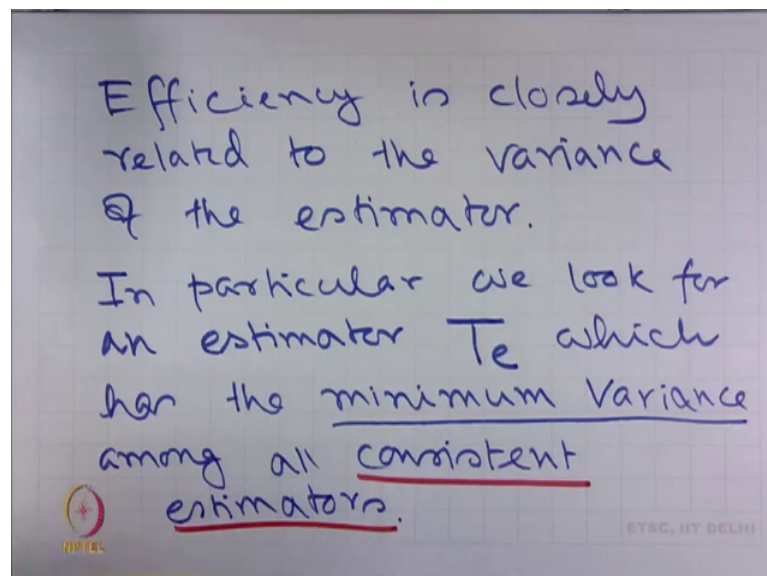 Efficiency is closely
related to the variance
of the estimator.
In particular we look for
an estimator Te which
has the minimum Variance
among all consistent
estimators.
NPTEL
ETSC, IIT DELHI